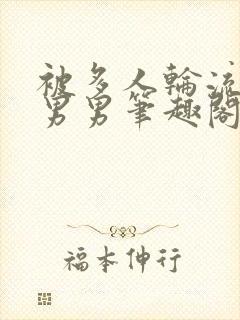 被多人輪流
男男筆趣閣
福本伸行